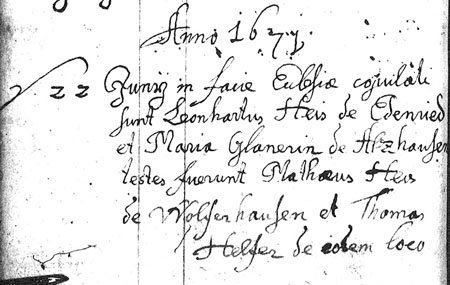 Anno 1671.
22 Junij in facie Ecclesiæ copulati
sunt Leonhartus Heis de Edenried
et Maria Glanerin de Atzhausen
testes fuerunt Mathæus Heis
de Wolferhausen et Thomas
Helfer de eodem loco